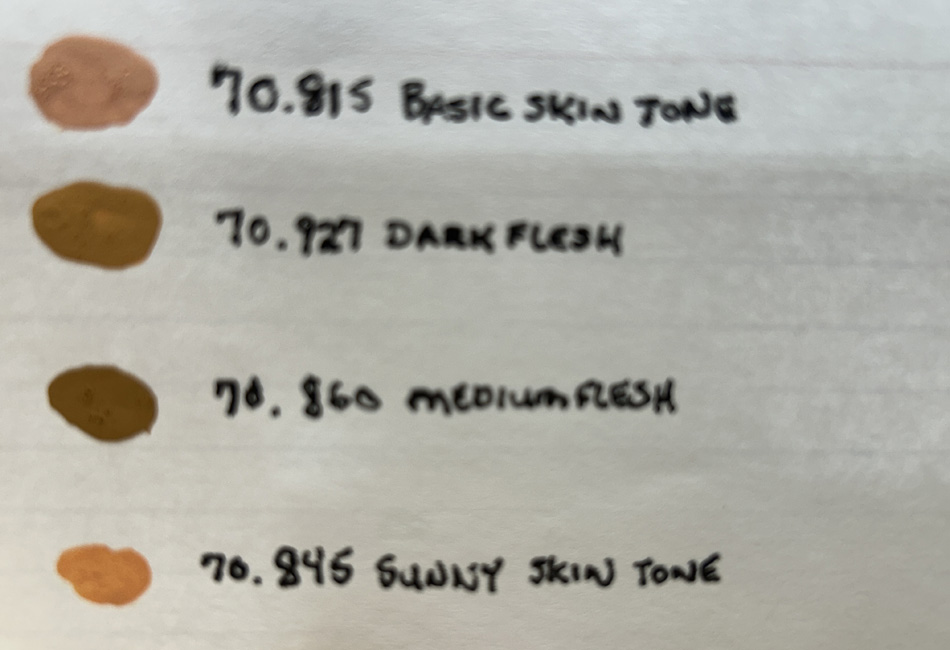 70.815 BASIC SKIN TONE
70.927 DARK FLESH
70.860 MEDIUM FLESH
70.845 SUNNY SKIN TONE